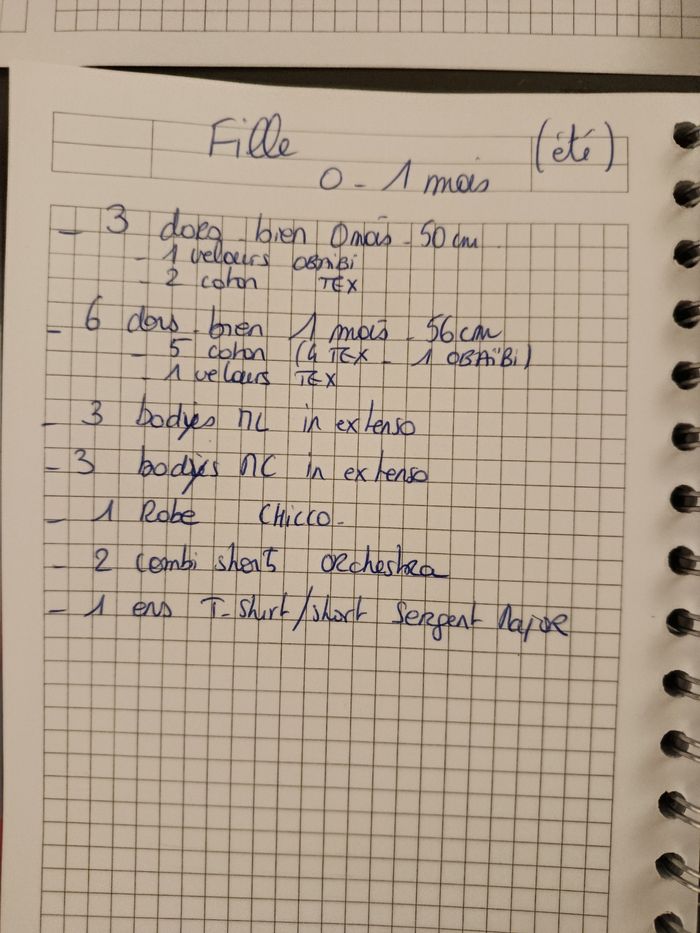 Fille (été)
0 - 1 mois
- 3 dors. bien 0 mois - 50 cm
- 1 velours OBAÏBI
- 2 coton TEX
- 6 dors. bien 1 mois - 56 cm
- 5 coton (4 TEX - 1 OBAÏBI)
- 1 velours TEX
- 3 bodyes ML in extenso
- 3 bodyes MC in extenso
- 1 Robe CHICCO.
- 2 combi short orchestra
- 1 ens T-shirt/short Sergent Major